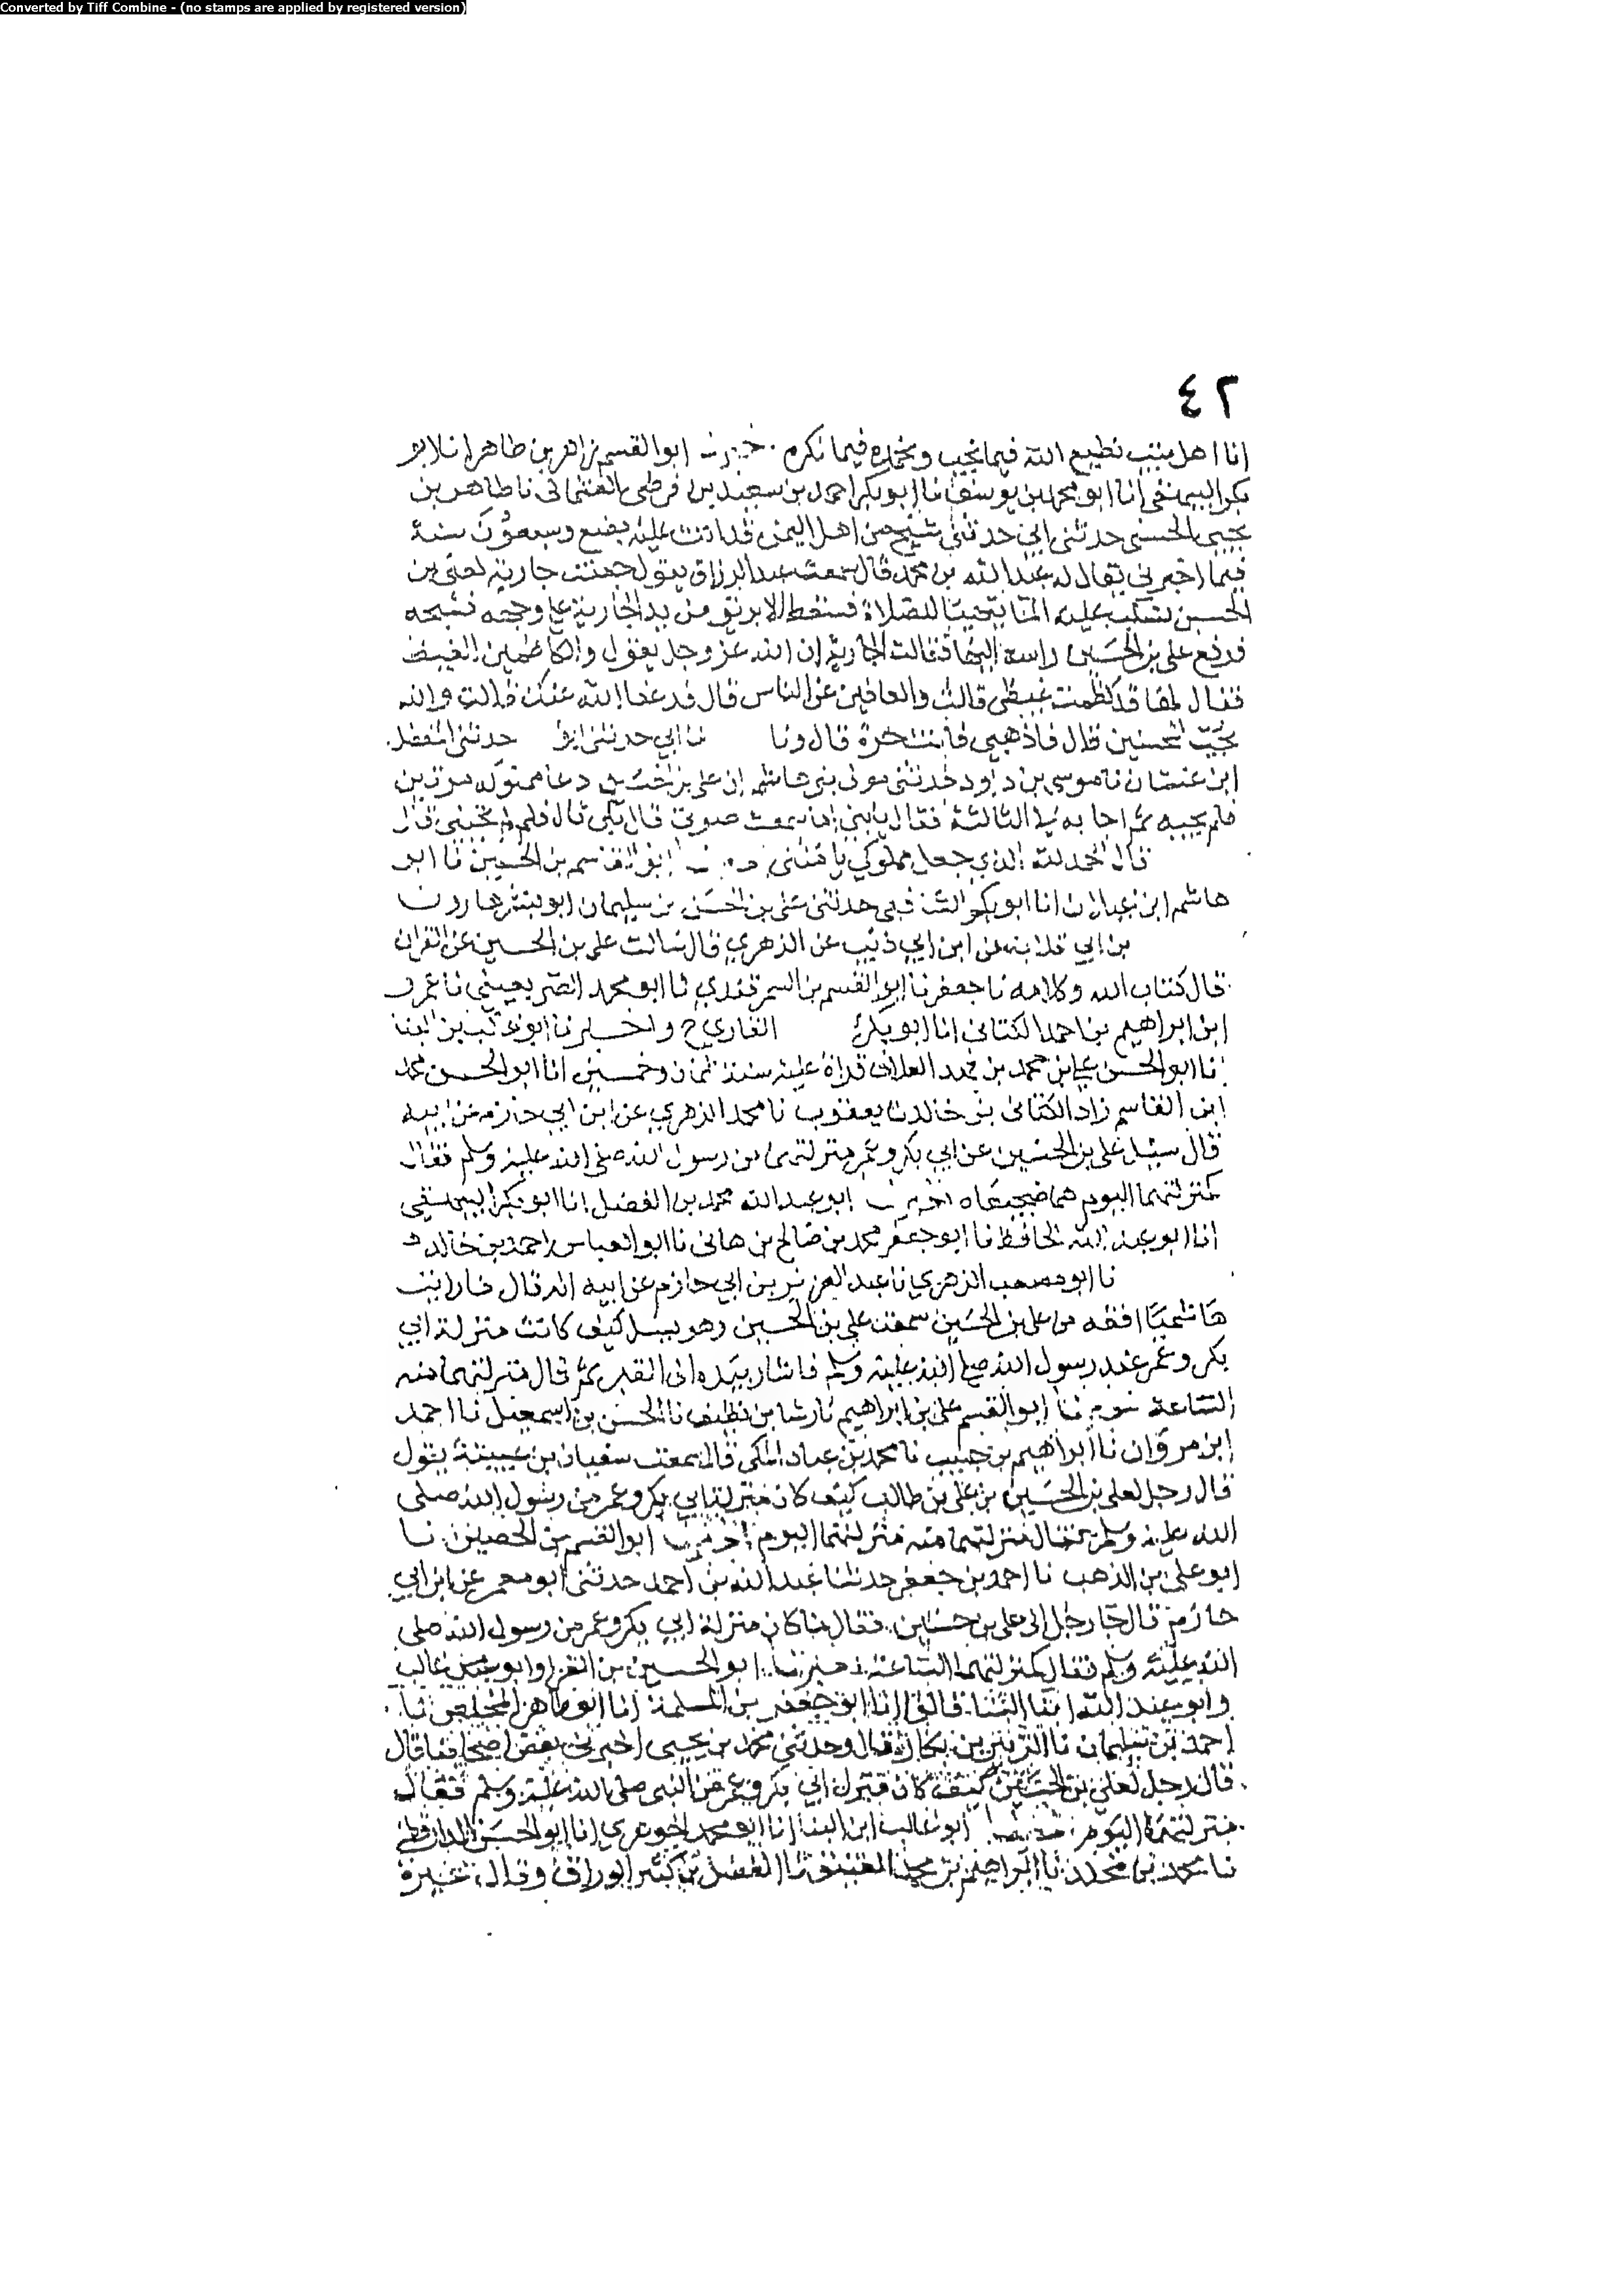 Converted by Tiff Combine - (no stamps are applied by registered version)
٤٢
انا اهل بيت نطيع الله فيما نحب ونحمده فيما نكره ابو القسم زاهر بن طاهر انا ابو
بكر البيهقي انا ابو محمد بن يوسف نا ابو بكر احمد بن سعيد بن نا طاهر بن
يحيى الحسني حدثني ابي حدثني شيخ من اهل اليمن قد اتت عليه بضع وسبعون سنة
فيما اخبرني يقال له عبد الله بن محمد قال سمعت عبد الرزاق يقول جعلت جارية لعلي بن
الحسين تسكب عليه الماء للصلاة فسقط الابريق من يد الجارية على وجهه فشجه
فرفع علي بن الحسين راسه اليها فقالت الجارية ان الله عز وجل يقول والكاظمين الغيظ
فقال لها قد كظمت غيظي قالت والعافين عن الناس قال قد عفا الله عنك قالت والله
يحب المحسنين قال فاذهبي فانت حرة قال ونا ابي حدثني حدثني
ابن عثمان نا موسى بن داود حدثني مولى بني هاشم ان علي بن الحسين دعا مملوكه مرتين
فلم يجبه ثم اجابه في الثالثة فقال يا بني اما سمعت صوتي قال بلى قال فلم لم تجبني قال
قال الحمد لله الذي جعل مملوكي يامنني ابو القاسم بن الحصين نا ابو
انا ابو بكر الشافعي حدثني بن الحسن بن سليمان ابو هارون
بن ابي عن ابن ابي ذئب عن الزهري قال سالت علي بن الحسين عن القران
قال كتاب الله وكلامه نا جعفر نا ابو القسم بن السمرقندي نا ابو محمد الصريفيني نا عمر
ابن ابراهيم بن احمد الكتاني انا ابو بكر ح واخبرنا ابو غالب بن البنا
انا ابو الحسن علي بن محمد بن محمد العلاف قراة عليه سنة ثمان وخمسين انا ابو الحسن محمد
ابن القاسم زاد الكتاني بن خالد نا يعقوب نا محمد الزهري عن ابن ابي حازم عن ابيه
قال سئل علي بن الحسين عن ابي بكر وعمر ومنزلتهما من رسول الله صلى الله عليه وسلم فقال
كمنزلتهما اليوم هما ضجيعاه اخبرنا ابو عبد الله محمد بن الفضل انا ابو بكر البيهقي
انا ابو عبد الله الحافظ نا ابو جعفر محمد بن صالح بن هاني نا ابو العباس احمد بن خالد
نا ابو مصعب الزهري نا عبد العزيز بن ابي حازم عن ابيه انه قال ما رايت
هاشميا افقه من علي بن الحسين سمعت علي بن الحسين وهو يسل كيف كانت منزلة ابي
بكر وعمر عند رسول الله صلى الله عليه وسلم فاشار بيده الى القبر ثم قال منزلتهما منه
الساعة ابو القسم علي بن ابراهيم نا رشا بن نظيف نا الحسن بن اسمعيل نا احمد
ابن مروان نا ابراهيم بن حبيب نا محمد بن عباد المكي قال سمعت سفيان بن عيينة يقول
قال رجل لعلي بن الحسين بن علي بن طالب كيف كان منزلة ابي بكر وعمر من رسول الله صلى
الله عليه وسلم قال منزلتهما منه منزلتهما اليوم اخبرنا ابو القسم بن الحصين نا
ابو علي بن المذهب نا احمد بن جعفر حدثنا عبد الله بن احمد حدثني ابو معمر عن ابن ابي
حازم قال جا رجل الى علي بن حسين فقال ما كان منزلة ابي بكر وعمر من رسول الله صلى
الله عليه وسلم فقال كمنزلتهما الساعة اخبرنا ابو الحسين بن الفرا وابو غالب
وابو عبد الله ابنا البنا قالوا انا ابو جعفر بن المسلمة انا ابو طاهر المخلص نا
احمد بن سليمان نا الزبير بن بكار قال وحدثني محمد بن يحيى اخبرني بعض اصحابنا قال
قال رجل لعلي بن الحسين كيف كان منزل ابي بكر وعمر من النبي صلى الله عليه وسلم فقال
منزلتهما اليوم ابو غالب ابن البنا انا ابو محمد الجوهري انا ابو الحسن الدارقطني
نا محمد بن مخلد نا ابراهيم بن محمد العتيق نا الفضل بن الوراق وقال غيره